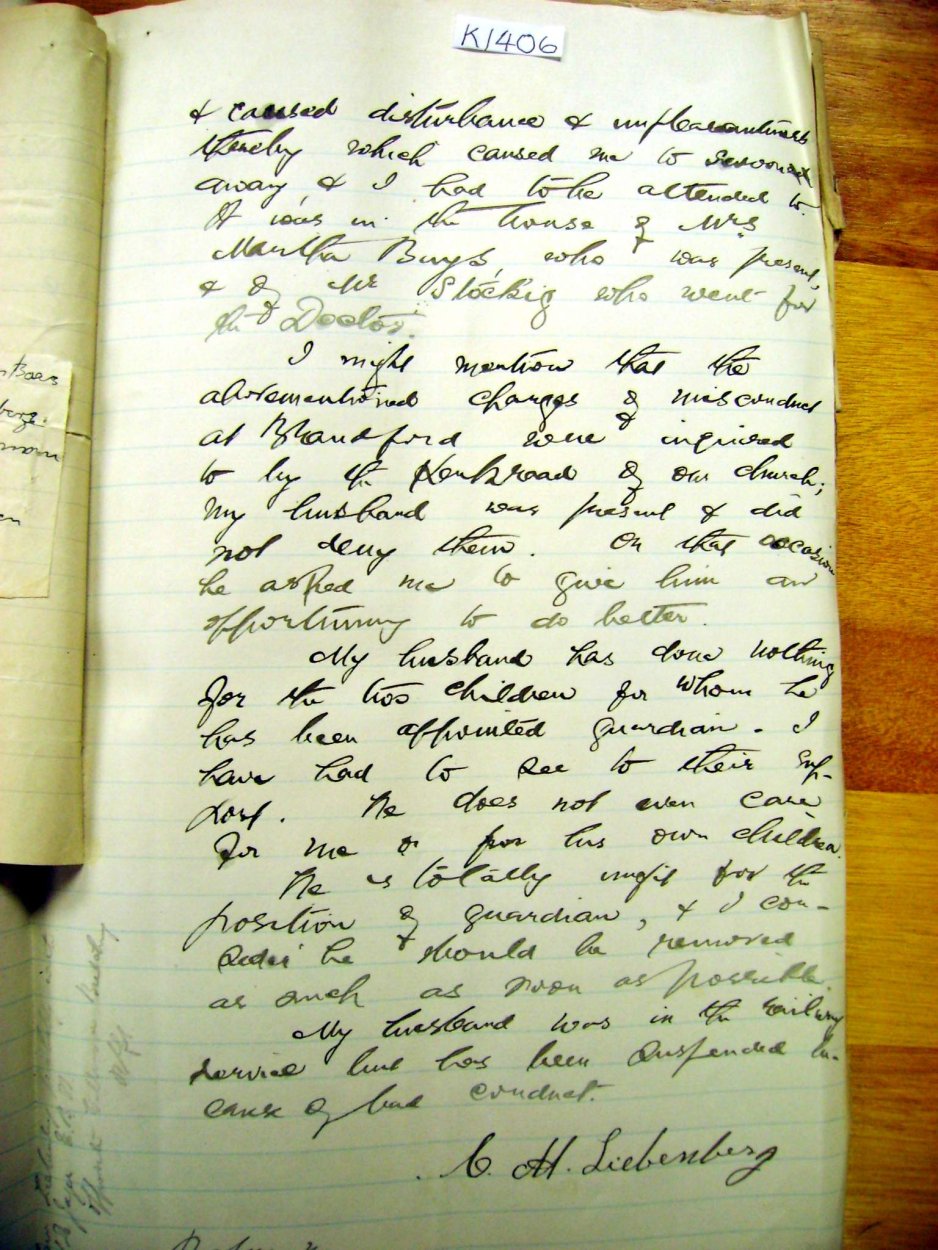 K1406
& caused disturbance & unpleasantness
thereby which caused me to swoon
away & I had to be attended to.
It was in the house of Mrs
Martha Buys who was present,
& of Mr Stöckig who went for
the Doctor.
I might mention that the
aforementioned charges of misconduct
at Brandford were inquired
to by the Kerkraad of our church;
my husband was present & did
not deny them. On that occasion
he asked me to give him an
opportunity to do better.
My husband has done nothing
for the two children for whom he
has been appointed guardian. I
have had to see to their sup-
port. He does not even care
for me or for his own children.
He is totally unfit for the
position of guardian, & I con-
sider he should be removed
as such as soon as possible.
My husband was in the railway
service but has been suspended be-
cause of bad conduct.
C. M. Liebenberg